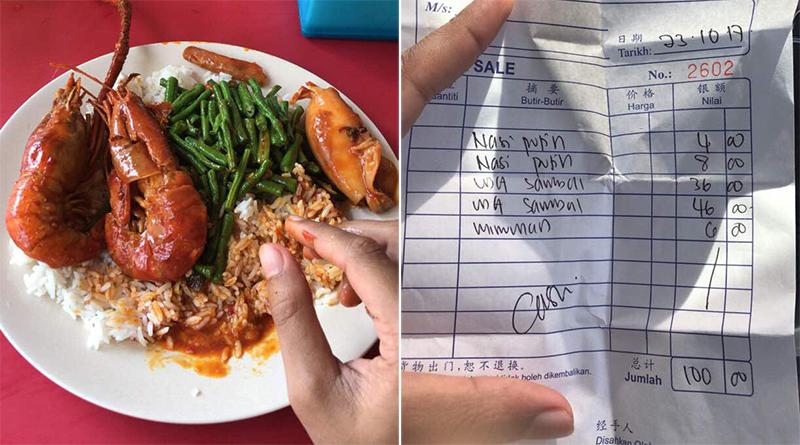 M/s:
日期
Tarikh: 23.10.17
SALE
No.: 2602
摘要
价格
银额
Butir-Butir
Harga
Nilai
Nasi putih 4 00
Nasi putih 8 00
udang sambal 36 00
udang sambal 46 00
minuman 6 00
Cash
货物出门，恕不退换。
总计
boleh dikembalikan.
Jumlah 100 00
经手人